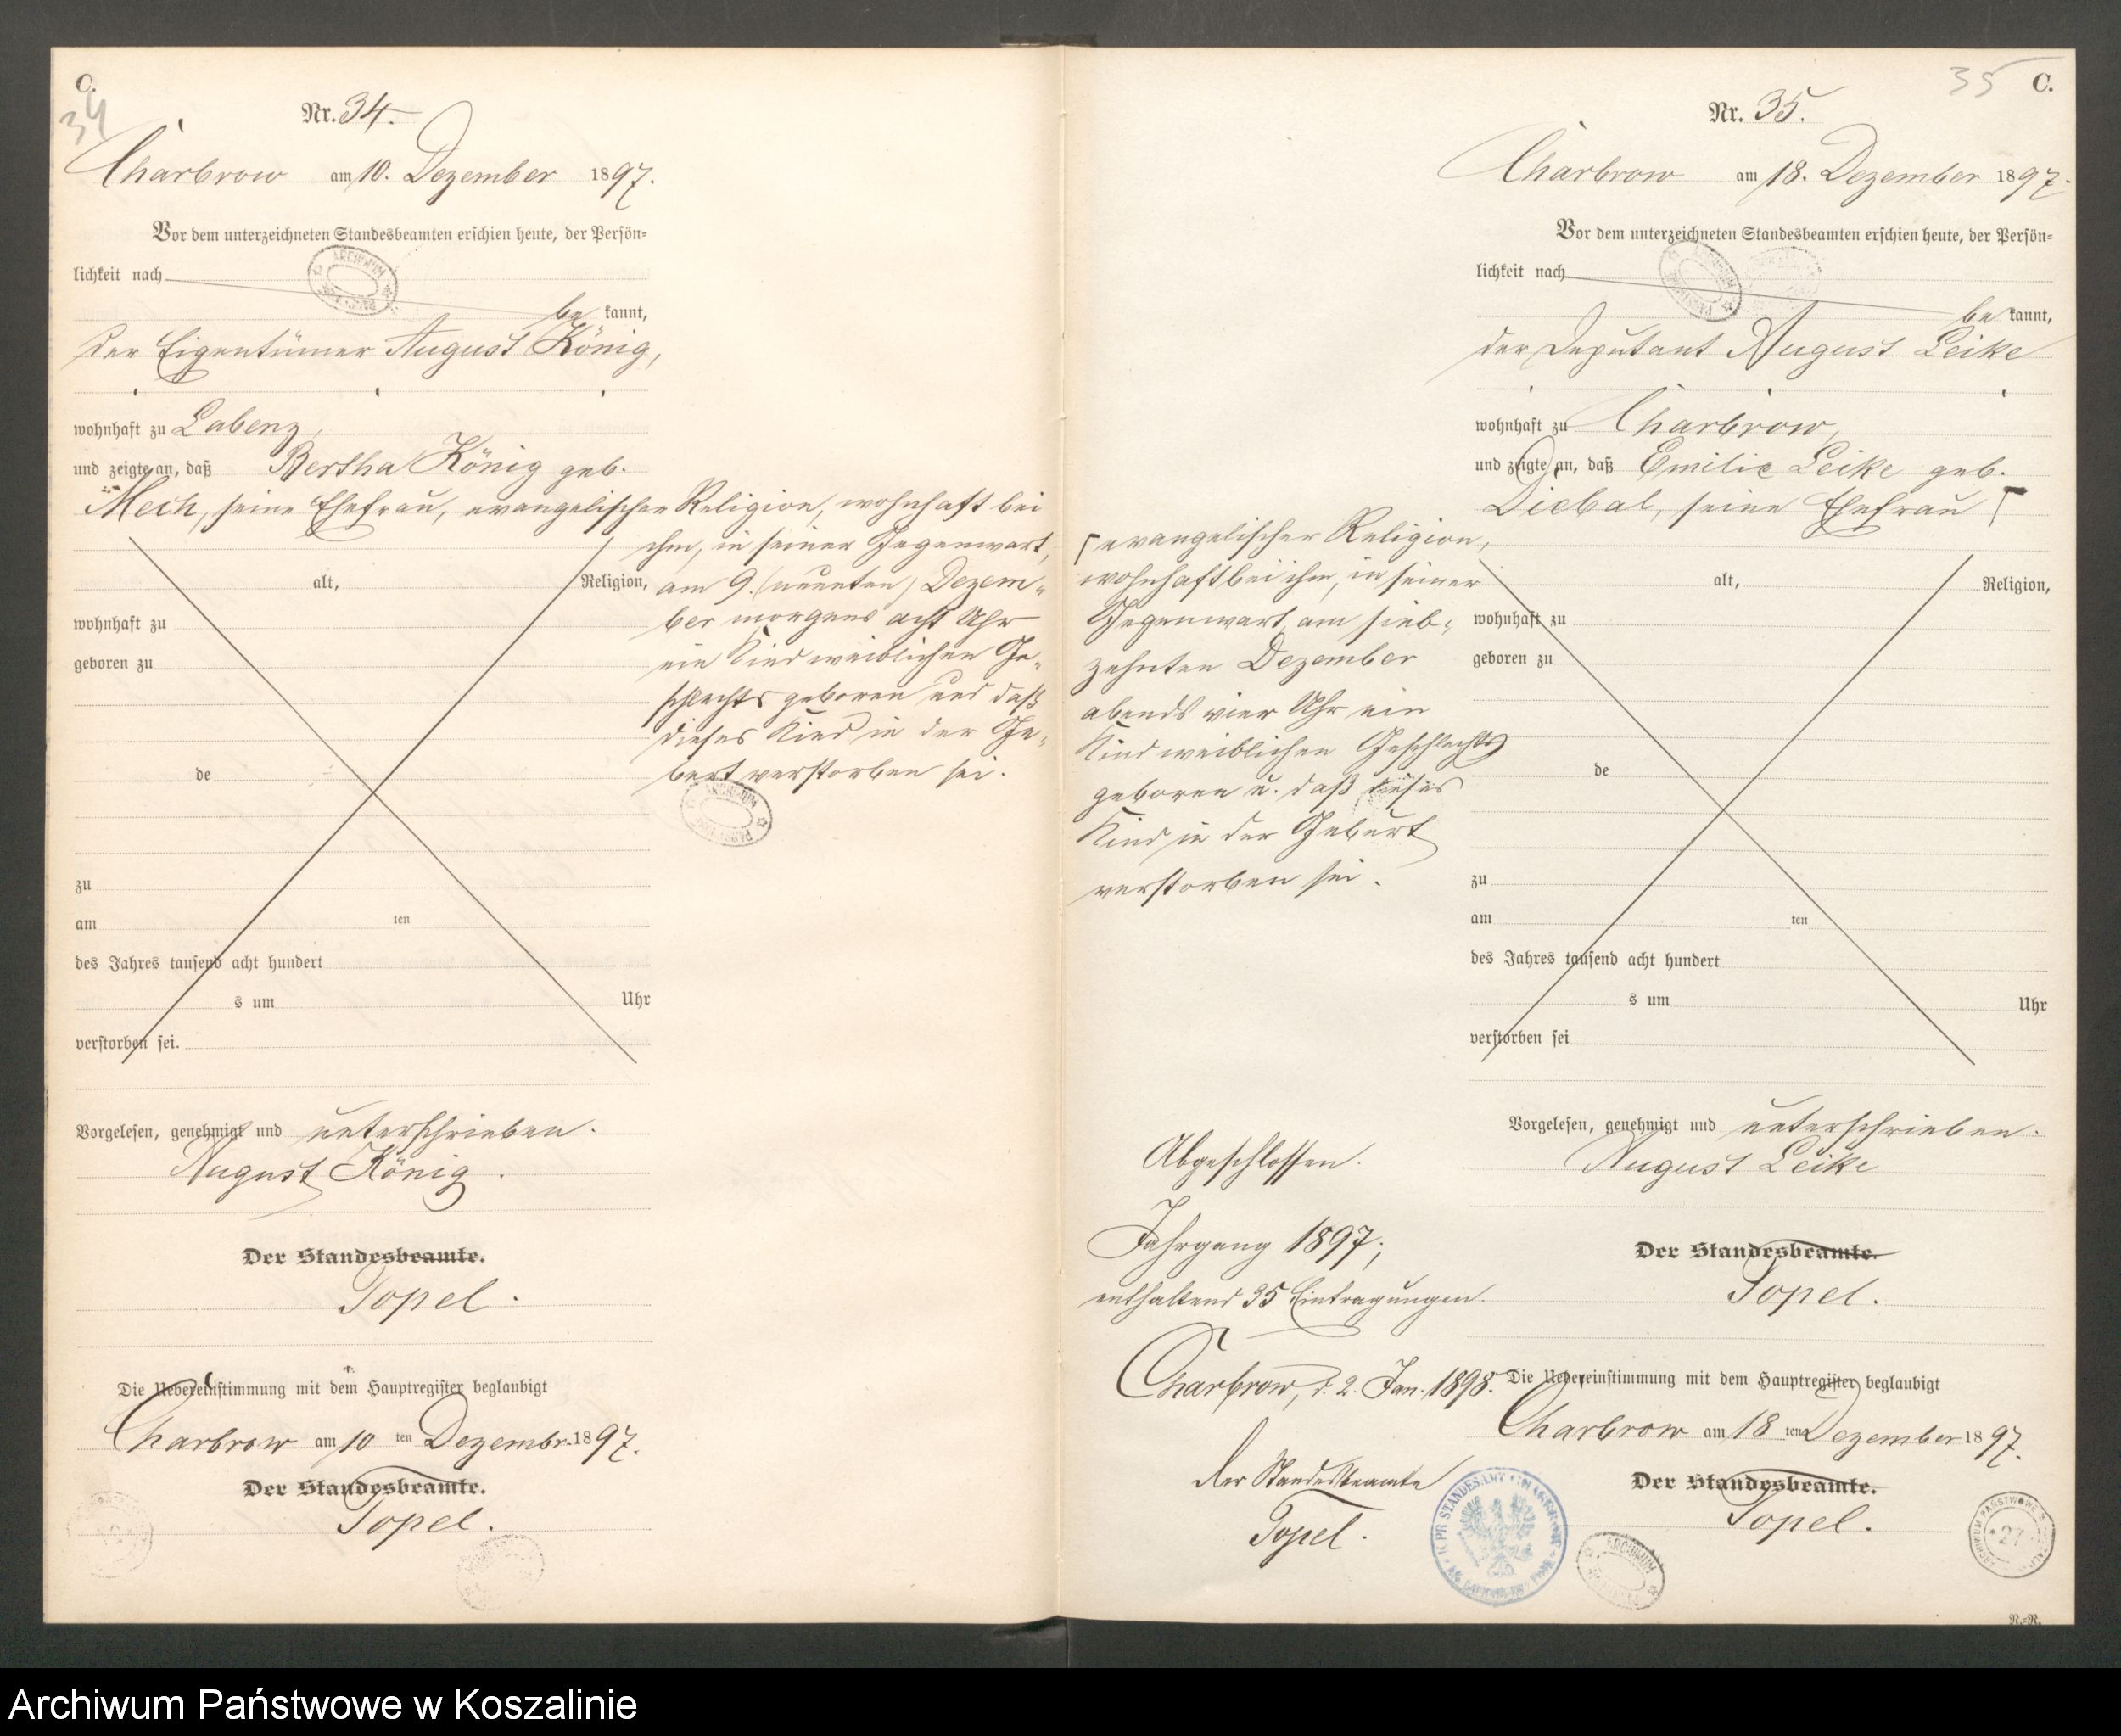 C.
34
Nr. 34.
Charbrow am 10. Dezember 1897.
Vor dem unterzeichneten Standesbeamten erschien heute, der Persön=
lichkeit nach
be kannt,
der Eigentümer August König,
wohnhaft zu Labenz,
und zeigte an, daß Bertha König geb.
Mech, seine Ehefrau, evangelischer Religion, wohnhaft bei
ihm, in seiner Gegenwart,
alt, Religion,
am 9. (neunten) Dezem-
wohnhaft zu
ber morgens acht Uhr
geboren zu
ein Kind weiblichen Ge-
schlechts geboren und daß
dieses Kind in der Ge-
burt verstorben sei.
de
zu
am ten
des Jahres tausend acht hundert
s um Uhr
verstorben sei.
Vorgelesen, genehmigt und unterschrieben.
August König.
Der Standesbeamte.
Topel.
Die Uebereinstimmung mit dem Hauptregister beglaubigt
Charbrow am 10 ten Dezembr. 1897.
Der Standesbeamte.
Topel.
35 C.
Nr. 35.
Charbrow am 18. Dezember 1897.
Vor dem unterzeichneten Standesbeamten erschien heute, der Persön=
lichkeit nach
be kannt,
der Deputant August Leike
wohnhaft zu Charbrow,
und zeigte an, daß Emilie Leike geb.
Diebal, seine Ehefrau ┌
┌ evangelischer Religion,
wohnhaft bei ihm, in seiner
Gegenwart, am sieb-
zehnten Dezember
abends vier Uhr ein
Kind weiblichen Geschlechts
geboren u. daß dieses
Kind in der Geburt
verstorben sei.
alt, Religion,
wohnhaft zu
geboren zu
de
zu
am ten
des Jahres tausend acht hundert
s um Uhr
verstorben sei
Vorgelesen, genehmigt und unterschrieben.
August Leike
Der Standesbeamte.
Topel.
Abgeschlossen.
Jahrgang 1897,
enthaltend 35 Eintragungen.
Charbrow, d. 2. Jan. 1898.
Der Standesbeamte
Topel.
Die Uebereinstimmung mit dem Hauptregister beglaubigt
Charbrow am 18 ten Dezember 1897.
Der Standesbeamte.
Topel.
ARCHIWUM PAŃSTWOWE
27
R.-R.
Archiwum Państwowe w Koszalinie